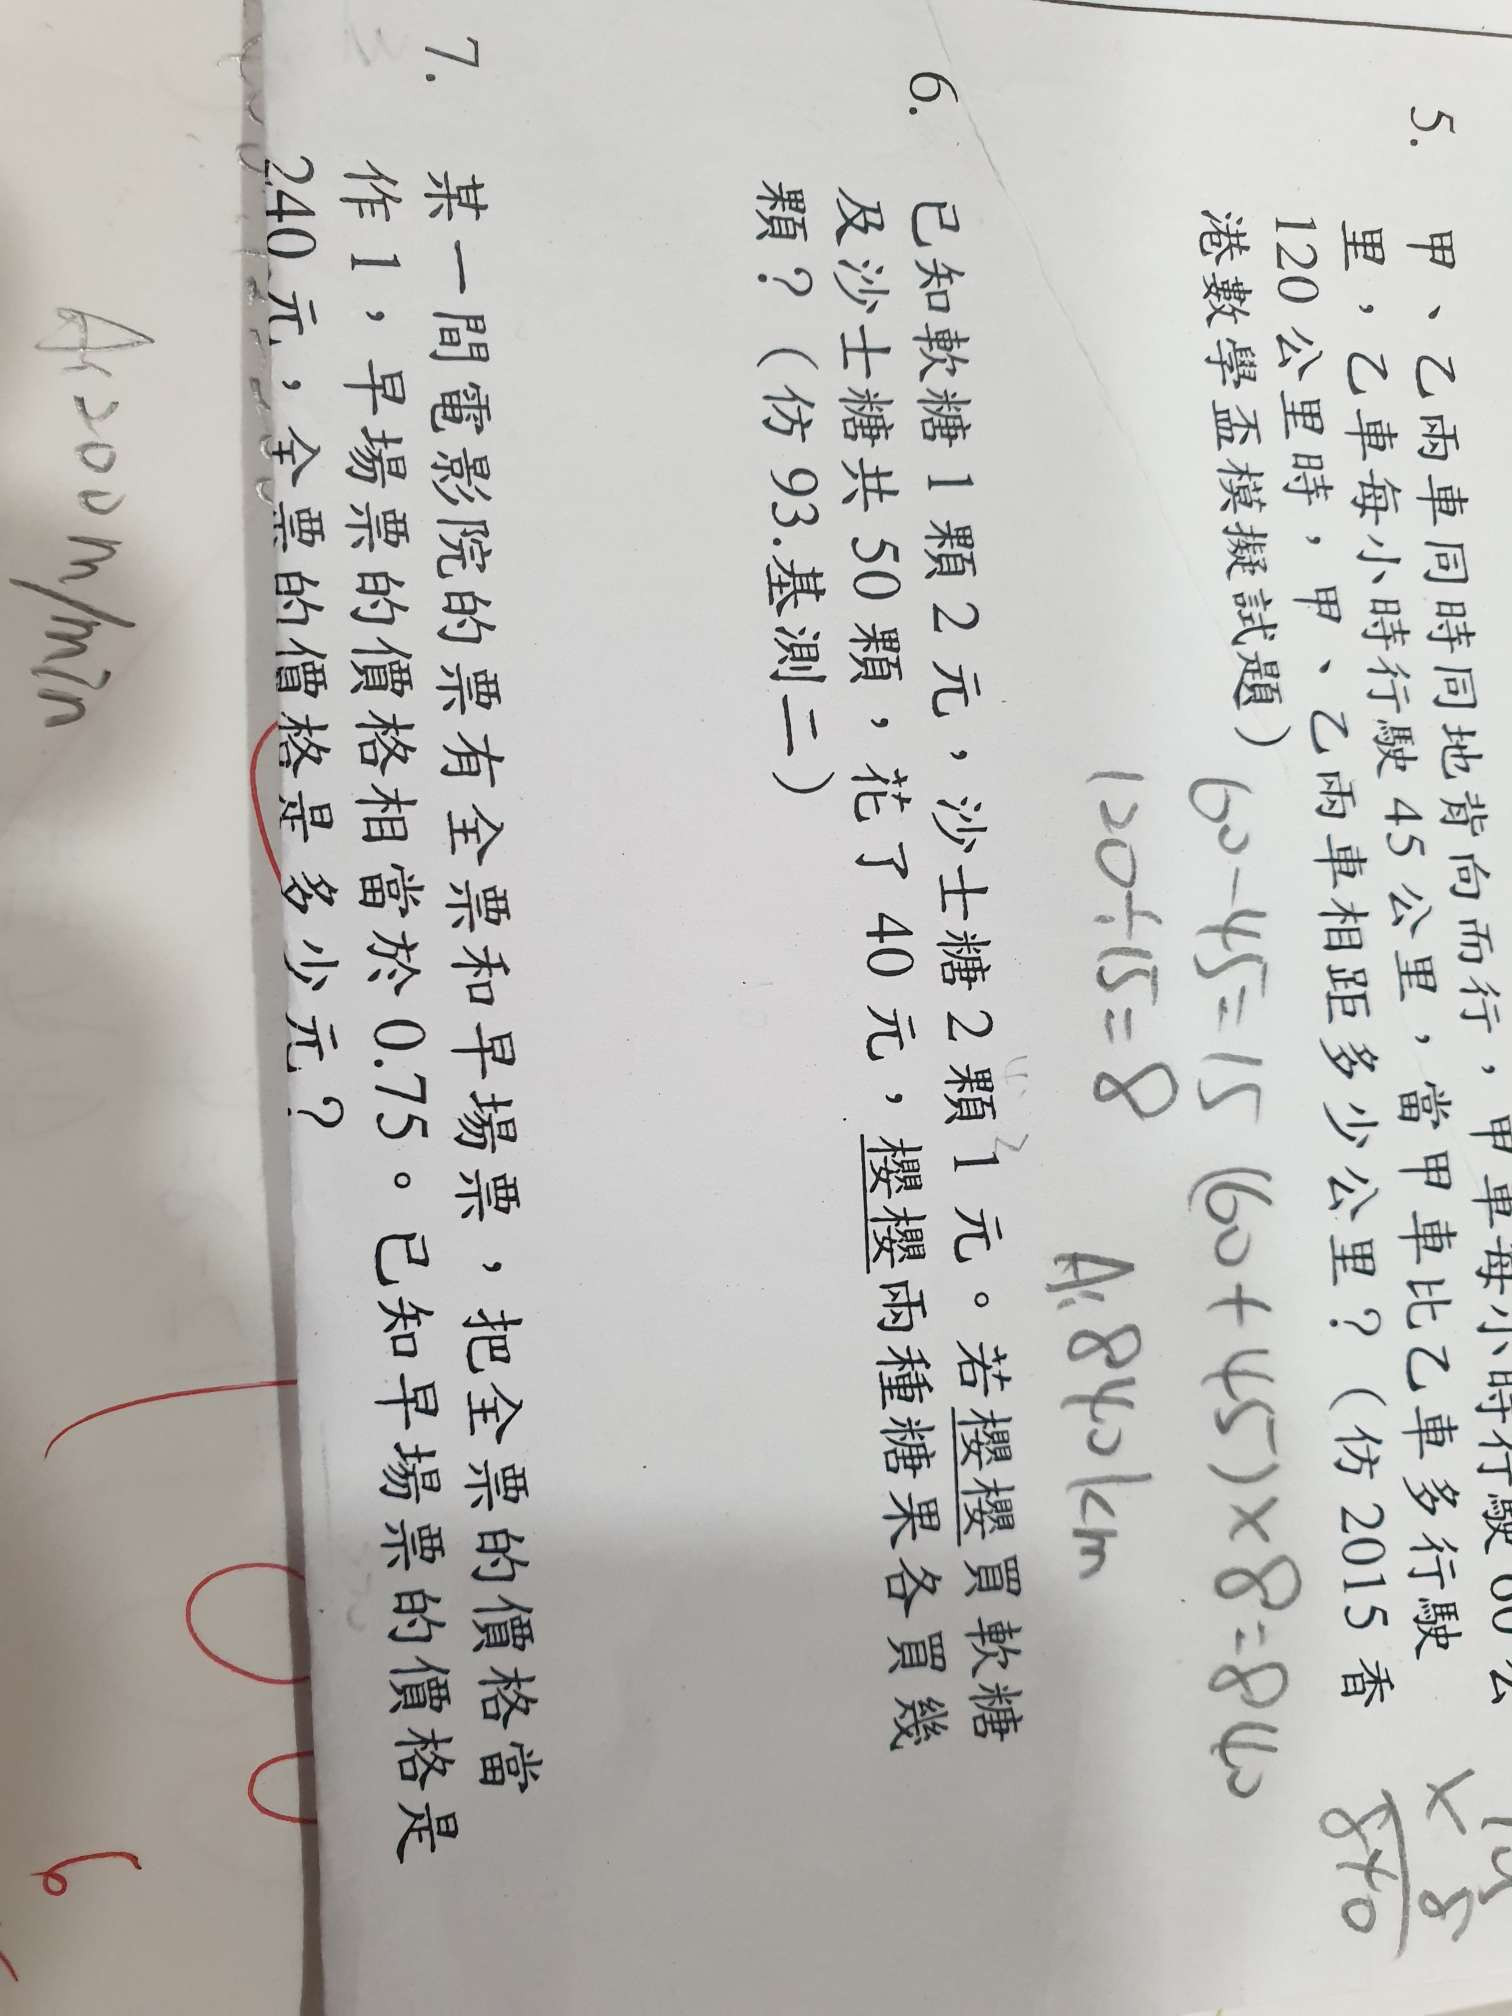 5. 甲、乙兩車同時同地背向而行，甲車每小時行駛 60 公
里，乙車每小時行駛 45 公里，當甲車比乙車多行駛
120 公里時，甲、乙兩車相距多少公里？（仿 2015 香
港數學盃模擬試題）
60-45=15 (60+45)×8=840
120÷15=8
A: 840km
× 8
840
6. 已知軟糖 1 顆 2 元，沙士糖 2 顆 1 元。若櫻櫻買軟糖
及沙士糖共 50 顆，花了 40 元，櫻櫻兩種糖果各買幾
顆？（仿 93.基測二）
7. 某一間電影院的票有全票和早場票，把全票的價格當
作 1，早場票的價格相當於 0.75。已知早場票的價格是
240 元，全票的價格是多少元？
A: 200m/min
6